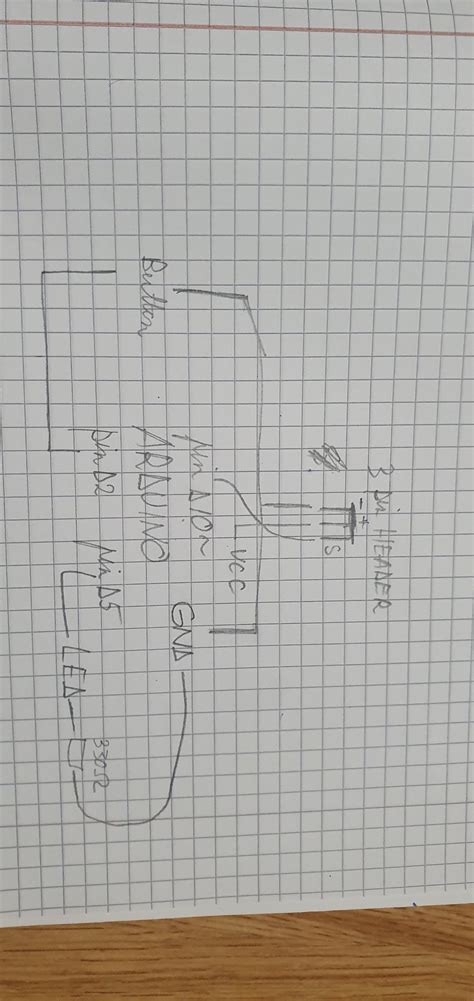 3 pin HEADER
- +
S
VCC
pin D10~
ARDUINO
GND
Button
pin D2
pin D5
LED
330Ω